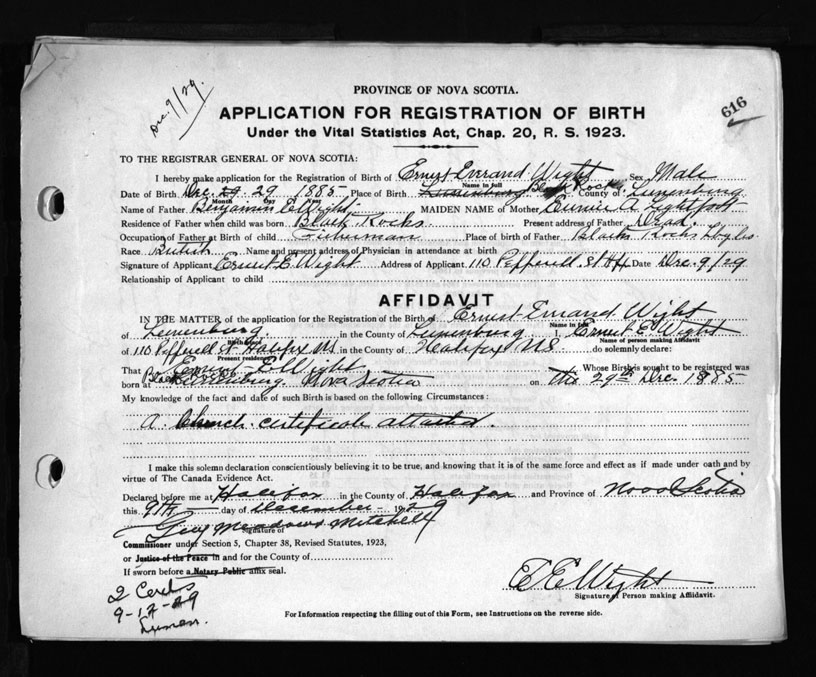 Dec. 9/29.
PROVINCE OF NOVA SCOTIA.
616
APPLICATION FOR REGISTRATION OF BIRTH
Under the Vital Statistics Act, Chap. 20, R. S. 1923.
TO THE REGISTRAR GENERAL OF NOVA SCOTIA:
I hereby make application for the Registration of Birth of Ernest Wight Sex Male
Name in full
Date of Birth Dec. 29 29 1885 Place of Birth Lunenburg Black Rocks County of Lunenburg
Month Day Year
Name of Father Benjamin E Wight MAIDEN NAME of Mother A Lightfoot
Residence of Father when child was born Black Rocks Present address of Father Dead
Occupation of Father at Birth of child Fisherman Place of birth of Father Black Rocks
Race British Name and present address of Physician in attendance at birth
Signature of Applicant Ernest E Wight Address of Applicant 110 St Date Dec. 9/29
Relationship of Applicant to child
AFFIDAVIT
IN THE MATTER of the application for the Registration of the Birth of Ernest Wight
Name in full
of Lunenburg. in the County of Lunenburg I, Ernest E. Wight
Birth place Name of person making affidavit
of 110 St Halifax NS in the County of Halifax NS do solemnly declare:
Present residence
That E Wight Whose Birth is sought to be registered was
born at Black Lunenburg Nova Scotia on the 29th Dec. 1885
My knowledge of the fact and date of such Birth is based on the following Circumstances:
A. Church certificate attached.
I make this solemn declaration conscientiously believing it to be true, and knowing that it is of the same force and effect as if made under oath and by
virtue of The Canada Evidence Act.
Declared before me at Halifax in the County of Halifax and Province of Nova Scotia
this 9th day of December 1929
Guy Meadows Mitchell
Signature of
Commissioner under Section 5, Chapter 38, Revised Statutes, 1923,
or Justice of the Peace in and for the County of
If sworn before a Notary Public affix seal.
E E Wight
Signature of Person making Affidavit.
2 Certs
9-12-29
For Information respecting the filling out of this Form, see Instructions on the reverse side.